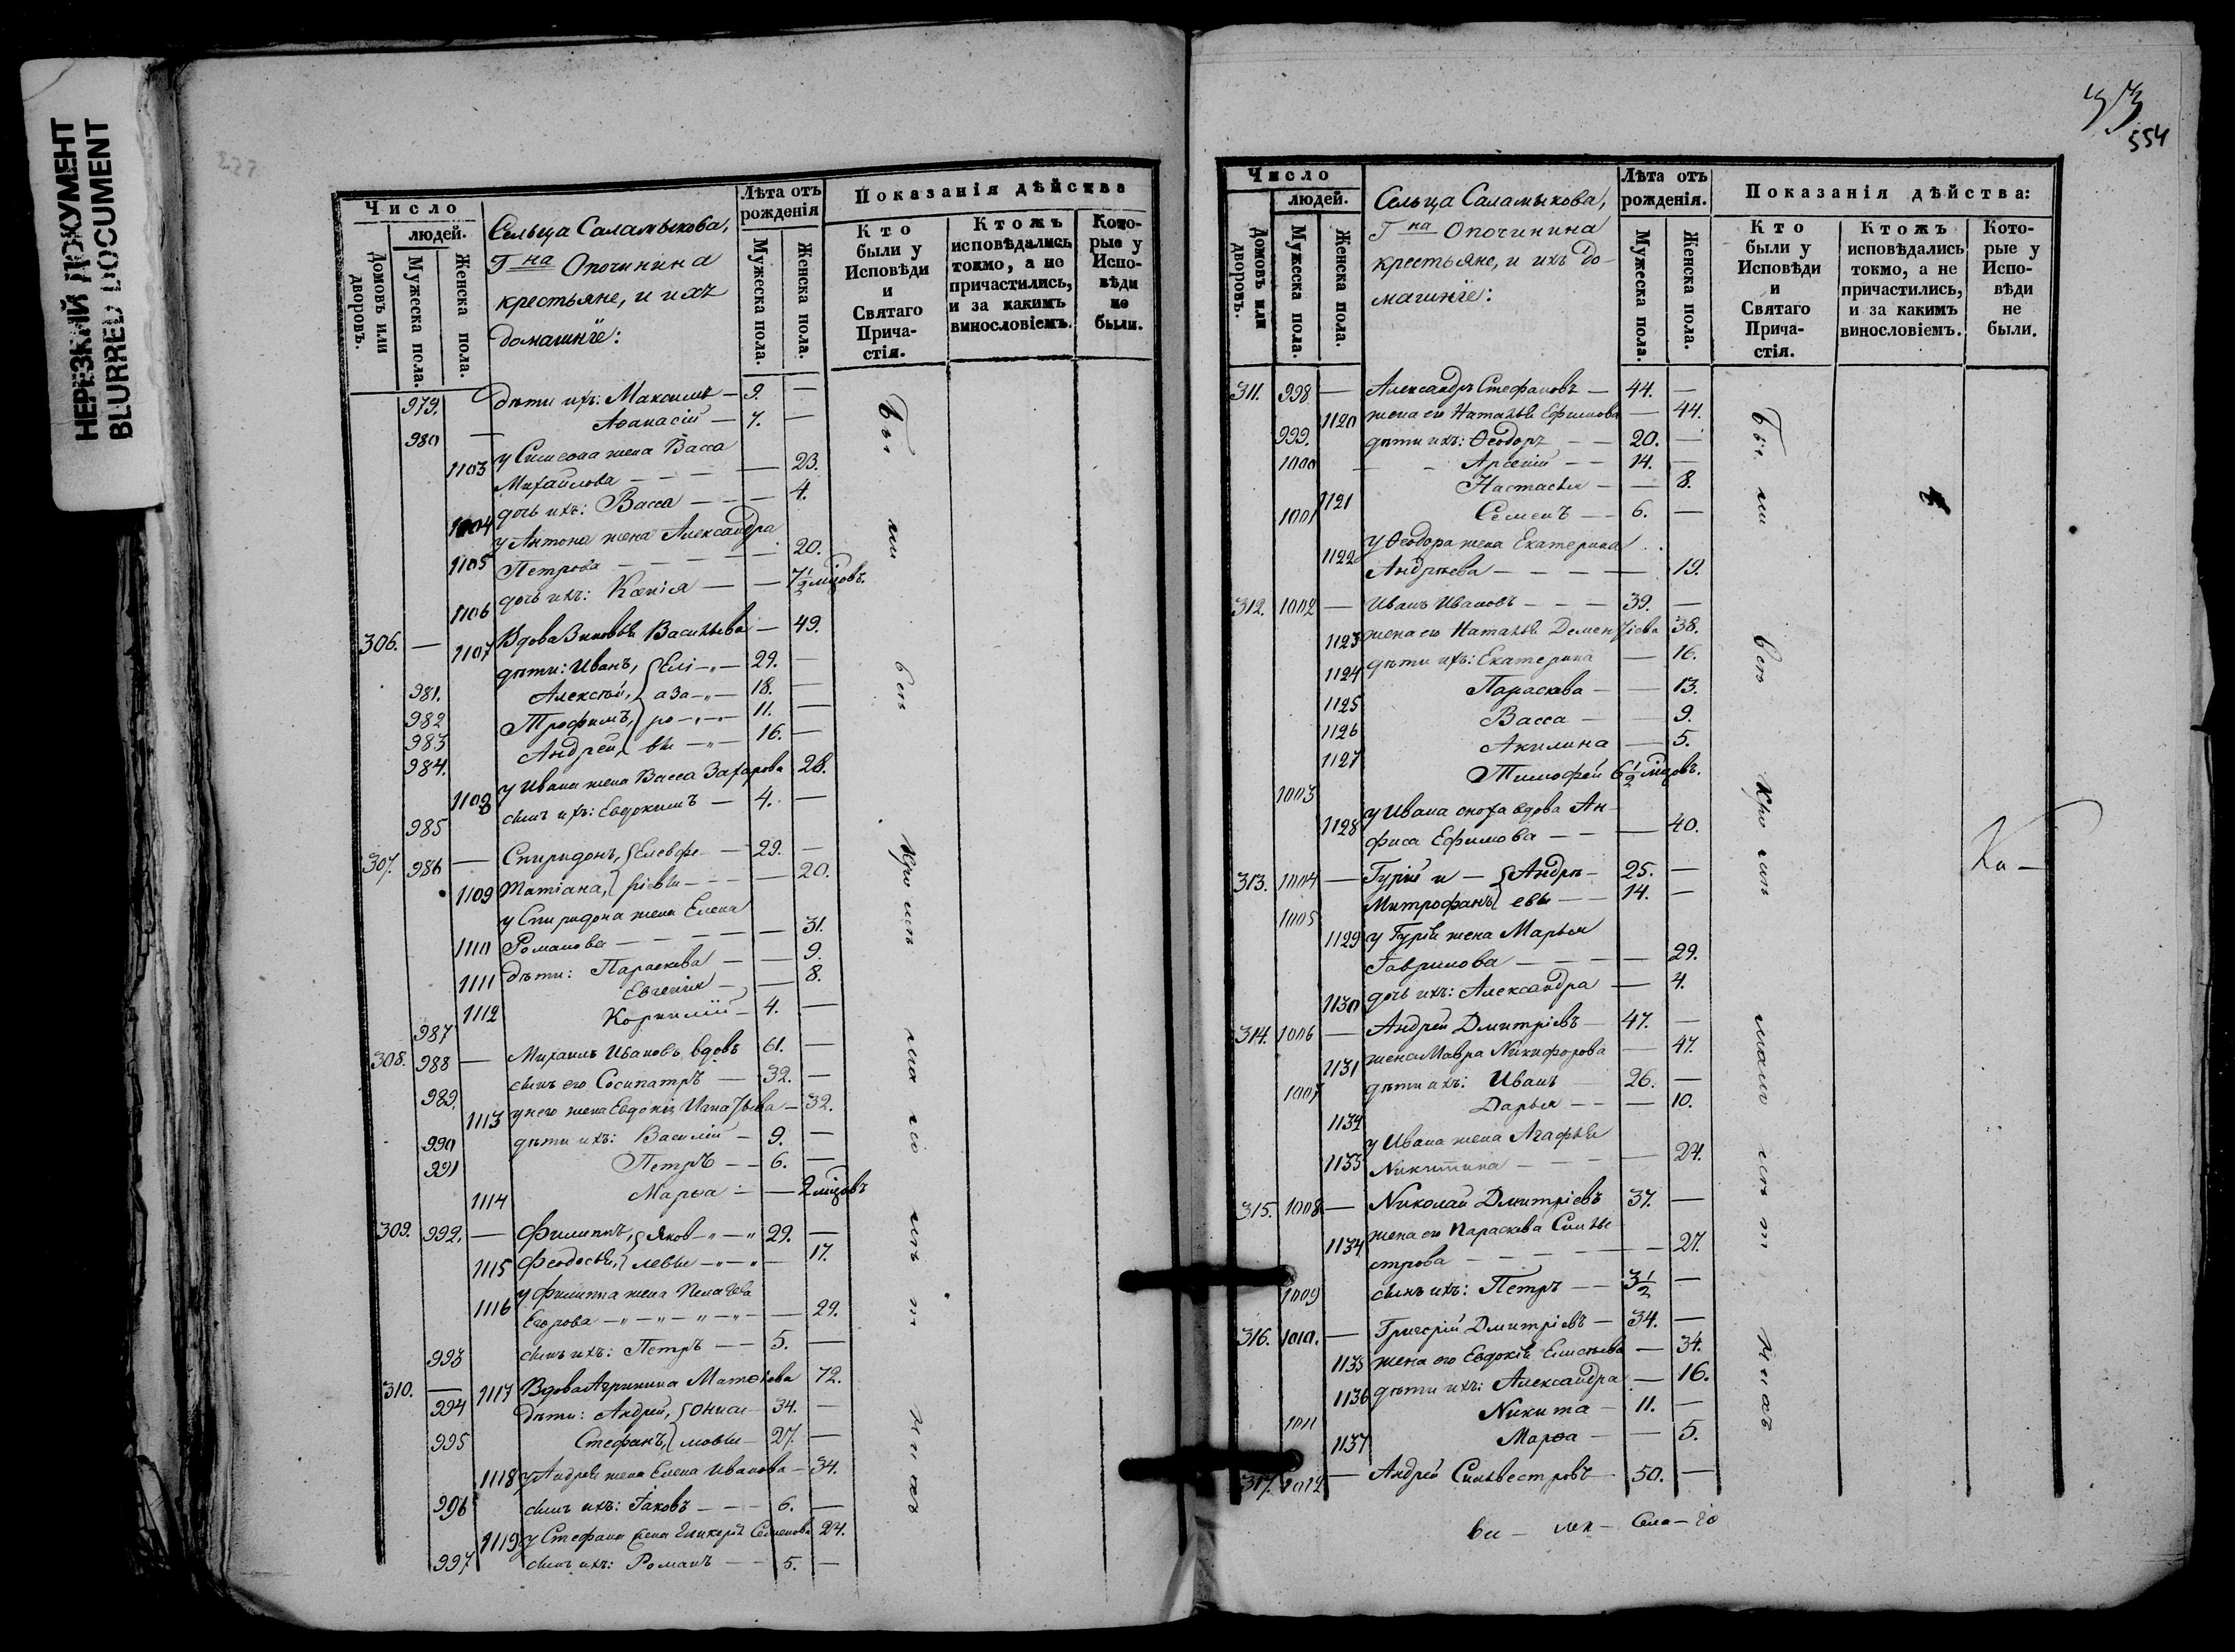 НЕРЕЗКИЙ ДОКУМЕНТ
BLURRED DOCUMENT
Число
людей.
Домовъ или дворовъ.
Мужеска пола.
Женска пола.
Сельца Саламыкова,
Гна Опочинина
крестьяне, и ихъ
домашнїе:
Лѣта отъ рожденія
Мужеска пола.
Женска пола.
Показанія дѣйства
Кто были у Исповѣди и Святаго Прича-стія.
Ктожъ исповѣдались токмо, а не причастились, и за какимъ винословіемъ.
Кото-рые у Испо-вѣди не были.
979. дѣти ихъ: Максимъ — 9. —
980 — Аѳанасій — 7. —
1103 у Симеона жена Васса
Михайлова — — — 23.
1104 дочь ихъ: Васса — — — 4.
1105 у Антона жена Александра
Петрова — — — 20.
1106 дочь ихъ: Ксенія — — 7 1/2 мцовъ.
306. — 1107 Вдова Зиновья Васильева — 49.
981. дѣти: Иванъ, Елі — 29. —
982 Алексѣй, аза — 18. —
983 Трофимъ, ро — 11. —
984. Андрей, вы — 16. —
1108 у Ивана жена Васса Захарова 28.
985 сынъ ихъ: Евдокимъ — 4. —
307. 986 — Спиридонъ, Елевфе — 29. —
1109 Татіана, ріевы — — 20.
у Спиридона жена Елена
1110 Романова — — — 31.
1111 дѣти: Параскева — — 9.
1112 Евгенія — — 8.
987 Корнилій — 4. —
308. 988 — Михаилъ Ивановъ, вдовъ 61. —
989. сынъ его Сосипатръ — 32. —
1113 у него жена Евдокія Игнатьева — 32.
990 дѣти ихъ: Василій — 9. —
991 Петръ — — 6. —
1114 Марѳа — — 2 мцовъ
309. 992. — Филиппъ, Яков 29. —
1115 Феодосья, левы — 17.
1116 у Филиппа жена Пелагея
Егорова — — 29.
993 сынъ ихъ: Петръ — — 5. —
310. — 1117 Вдова Агрипина Матвѣева 72.
994 дѣти: Андрей,Ониси 34. —
995 Стефанъ, мовы — 27. —
1118 у Андрея жена Елена Иванова — 34.
996 сынъ ихъ: Іаковъ — — — 6. —
1119 у Стефана жена Гликерія Семенова 24.
997 сынъ ихъ: Романъ — — 5. —
554
Число
людей.
Домовъ или дворовъ.
Мужеска пола.
Женска пола.
Сельца Саламыкова,
Гна Опочинина
крестьяне, и ихъ до-
машнїе:
Лѣта отъ рожденія.
Мужеска пола.
Женска пола.
Показанія дѣйства:
Кто были у Исповѣди и Святаго Прича-стія.
Ктожъ исповѣдались токмо, а не причастились, и за какимъ винословіемъ.
Кото-рые у Испо-вѣди не были.
311. 998 — Александръ Стефановъ — 44. —
1120 жена его Наталья Ефимова — 44.
999. дѣти ихъ: Ѳеодоръ — — 20. —
1000 Арсеній — — 14. —
1121 Настасья — — 8.
1001 Семенъ — — 6. —
у Ѳеодора жена Екатерина
1122 Андрѣева — — — — 19.
312. 1002 — Иванъ Ивановъ — — — 39. —
1123 жена его Наталья Дементіева 38.
1124 дѣти ихъ: Екатерина — 16.
1125 Параскева — — 13.
1126 Васса — — 9.
1127 Акилина — 5.
1003 Тимофей 6 1/2 мцовъ.
у Ивана сноха вдова Ан-
1128 фиса Ефимова — — — 40.
313. 1004 — Гурій и — Андрѣ — 25. —
1005 Митрофанъ евы — — 14. —
1129 у Гурія жена Марья
Гаврилова — — — — 29.
1130 дочь ихъ: Александра — 4.
314. 1006 — Андрей Дмитріевъ — 47. —
1131 жена Мавра Никифорова — 47.
1007 дѣти ихъ: Иванъ — 26. —
1132 Дарья — — — 10.
у Ивана жена Агафья
1133 Никитина — — — — 24.
315. 1008. — Николай Дмитріевъ 37. —
1134 жена его Параскева Сильве
строва — — — — 27.
1009 сынъ ихъ: Петръ — — 3 1/2 —
316. 1010. — Григорій Дмитріевъ — 34. —
1135 жена его Евдокія Елисѣева — 34.
1136 дѣти ихъ: Александра — 16.
1011 Никита — 11. —
1137 Марѳа — — 5.
317. 1012 — Андрей Сильвестровъ — 50. —